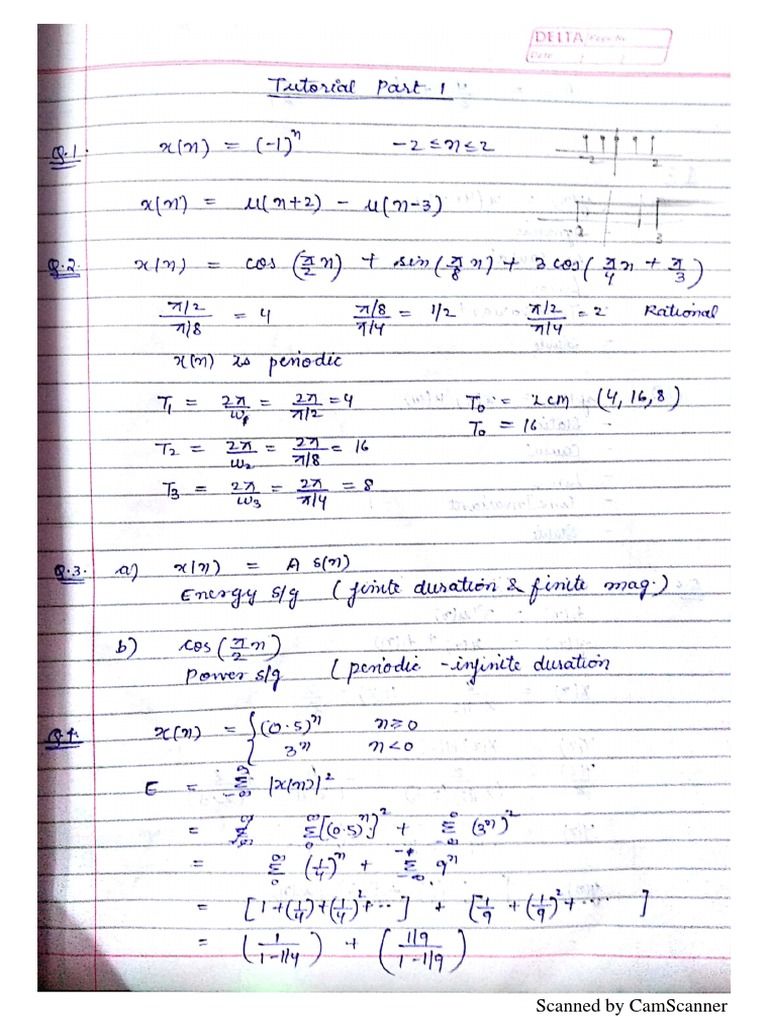 DELTA Page No.
Date / /
Tutorial Part 1
Q.1. x(n) = (-1)^n   -2 ≤ n ≤ 2   -2   2
x(n) = u(n+2) - u(n-3)   -2   3
Q.2. x(n) = cos(π/2 n) + sin(π/8 n) + 3cos(π/4 n + π/3)
(π/2)/(π/8) = 4   (π/8)/(π/4) = 1/2   (π/2)/(π/4) = 2   Rational
x(n) is periodic
T1 = 2π/ω1 = 2π/(π/2) = 4   T0 = LCM (4, 16, 8)
T0 = 16
T2 = 2π/ω2 = 2π/(π/8) = 16
T3 = 2π/ω3 = 2π/(π/4) = 8
Q.3. a) x(n) = A δ(n)
Energy s/g (finite duration & finite mag.)
b) cos(π/2 n)
Power s/g (periodic - infinite duration
Q4. x(n) = { (0.5)^n   n ≥ 0
3^n   n < 0
E = Σ_{-∞}^{∞} |x(n)|^2
= Σ_0^∞ [(0.5)^n]^2 + Σ (3^n)^2
= Σ_0^∞ (1/4)^n + Σ_{-∞}^{-1} 9^n
= [1+(1/4)+(1/4)^2+...] + [1/9 + (1/9)^2 + .... ]
= (1/(1-1/4)) + ((1/9)/(1-1/9))
Scanned by CamScanner